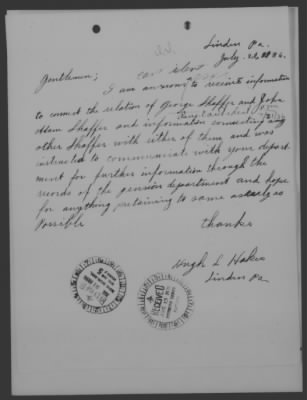 Linden Pa.
July 22,
Gentlemen;
I am anxious to receive information
to connect the relation of George Shaffer and John
Adam Shaffer and information connecting any
other Shaffer with either of them and was
instructed to communicate with your depart
ment for further information through the
records of the pension department and hope
for anything pertaining to same as early as
Possible
thanks
Hugh L
Linden Pa
RECEIVED